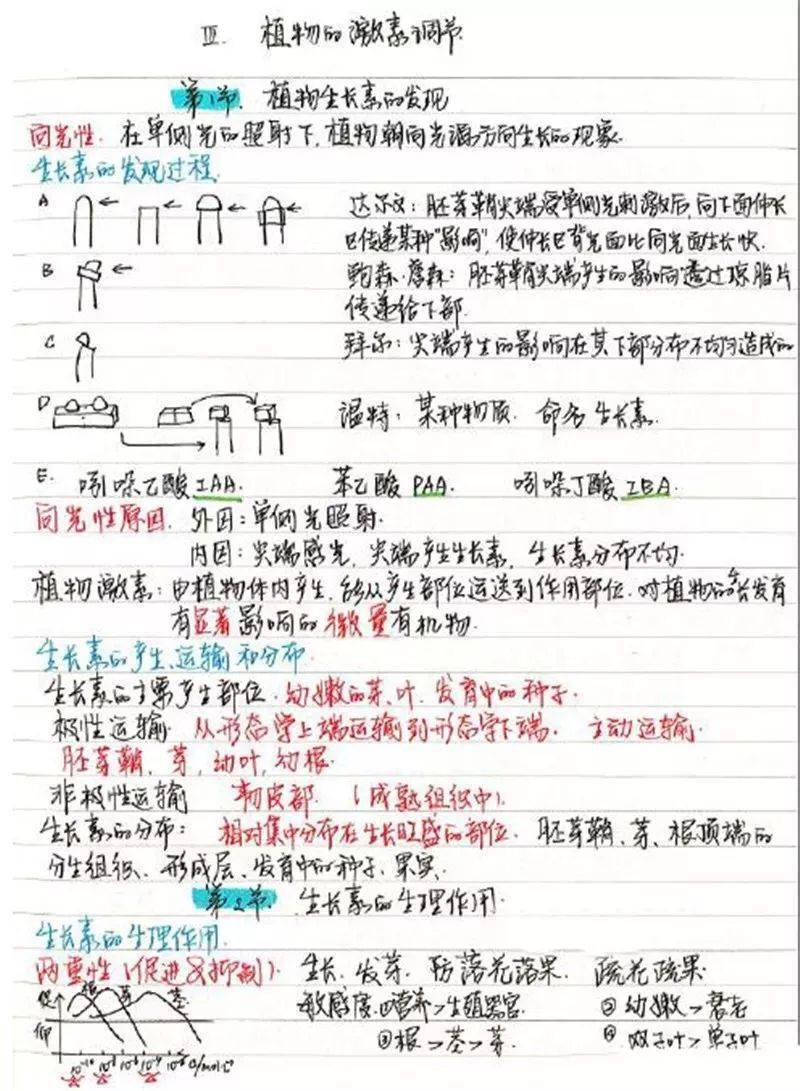 III. 植物的激素调节
第1节. 植物生长素的发现
向光性. 在单侧光的照射下, 植物朝向光源方向生长的现象.
生长素的发现过程.
A 达尔文: 胚芽鞘尖端受单侧光刺激后, 向下面伸长
区传递某种"影响", 使伸长区背光面比向光面生长快.
B 鲍森·詹森: 胚芽鞘尖端产生的影响透过琼脂片
传递给下部.
C 拜尔: 尖端产生的影响在其下部分布不均匀造成的
D 温特: 某种物质. 命名生长素.
E. 吲哚乙酸 IAA. 苯乙酸 PAA. 吲哚丁酸 IBA.
向光性原因. 外因: 单侧光照射.
内因: 尖端感光, 尖端产生生长素, 生长素分布不均.
植物激素: 由植物体内产生, 能从产生部位运送到作用部位. 对植物的生长发育
有显著影响的微量有机物.
生长素的产生、运输和分布.
生长素的主要产生部位. 幼嫩的芽、叶. 发育中的种子.
极性运输. 从形态学上端运输到形态学下端. 主动运输.
胚芽鞘, 芽, 幼叶, 幼根.
非极性运输 韧皮部. (成熟组织中).
生长素的分布: 相对集中分布在生长旺盛的部位. 胚芽鞘、芽、根顶端的
分生组织、形成层、发育中的种子、果实.
第2节. 生长素的生理作用.
生长素的生理作用.
两重性 (促进&抑制). 生长. 发芽. 防落花落果. 疏花疏果.
促 根 芽 茎 敏感度. ①营养>生殖器官. ③ 幼嫩>衰老
抑 ②根>茎>芽. ④ 双子叶>单子叶
10⁻¹⁰ 10⁻⁸ 10⁻⁶ 10⁻⁴ c/mol·L⁻¹